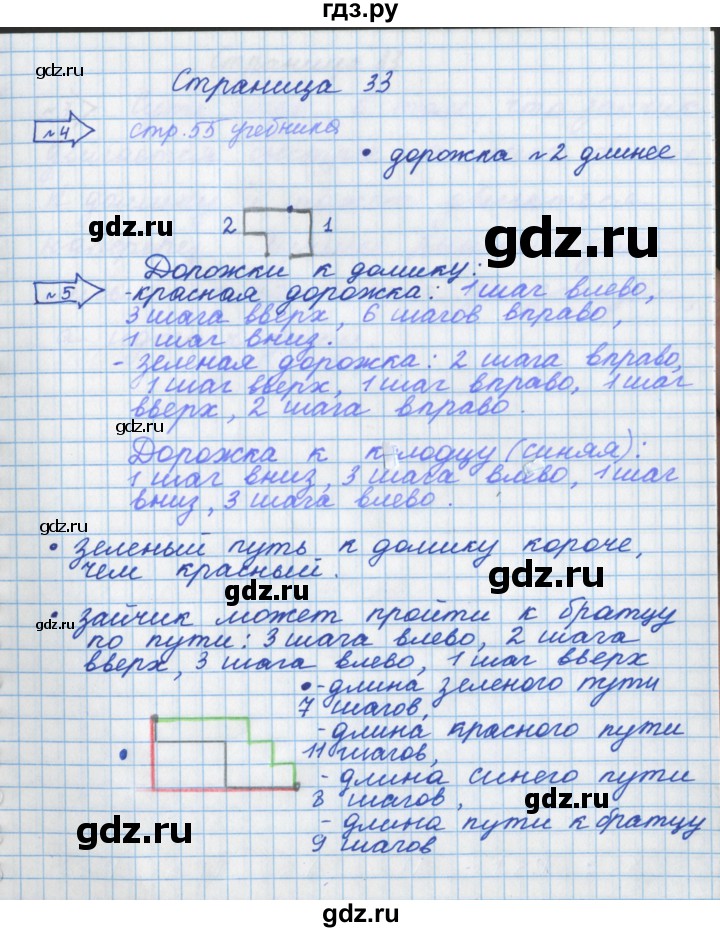 гдз.ру
gdz.ru
Страница 33
№4 стр.55 учебника
• дорожка №2 длинее
gdz.ru
gdz.ru
2 1
Дорожки к домику:
№5 -красная дорожка: 1 шаг влево,
3 шага вверх, 6 шагов вправо,
1 шаг вниз.
- зеленая дорожка: 2 шага вправо,
1 шаг вверх, 1 шаг вправо, 1 шаг
вверх, 2 шага вправо.
gdz.ru
Дорожка к к лодцу (синяя):
1 шаг вниз, 3 шага влево, 1 шаг
вниз, 3 шага влево.
gdz.ru
• зеленый путь к домику короче,
чем красный.
gdz.ru
gdz.ru
• зайчик может пройти к братцу
gdz.ru
по пути: 3 шага влево, 2 шага
вверх, 3 шага влево, 1 шаг вверх
• - длина зеленого пути
7 шагов,
- длина красного пути
11 шагов,
- длина синего пути
8 шагов,
gdz.ru
- длина пути к братцу
gdz.ru
9 шагов
gdz.ru